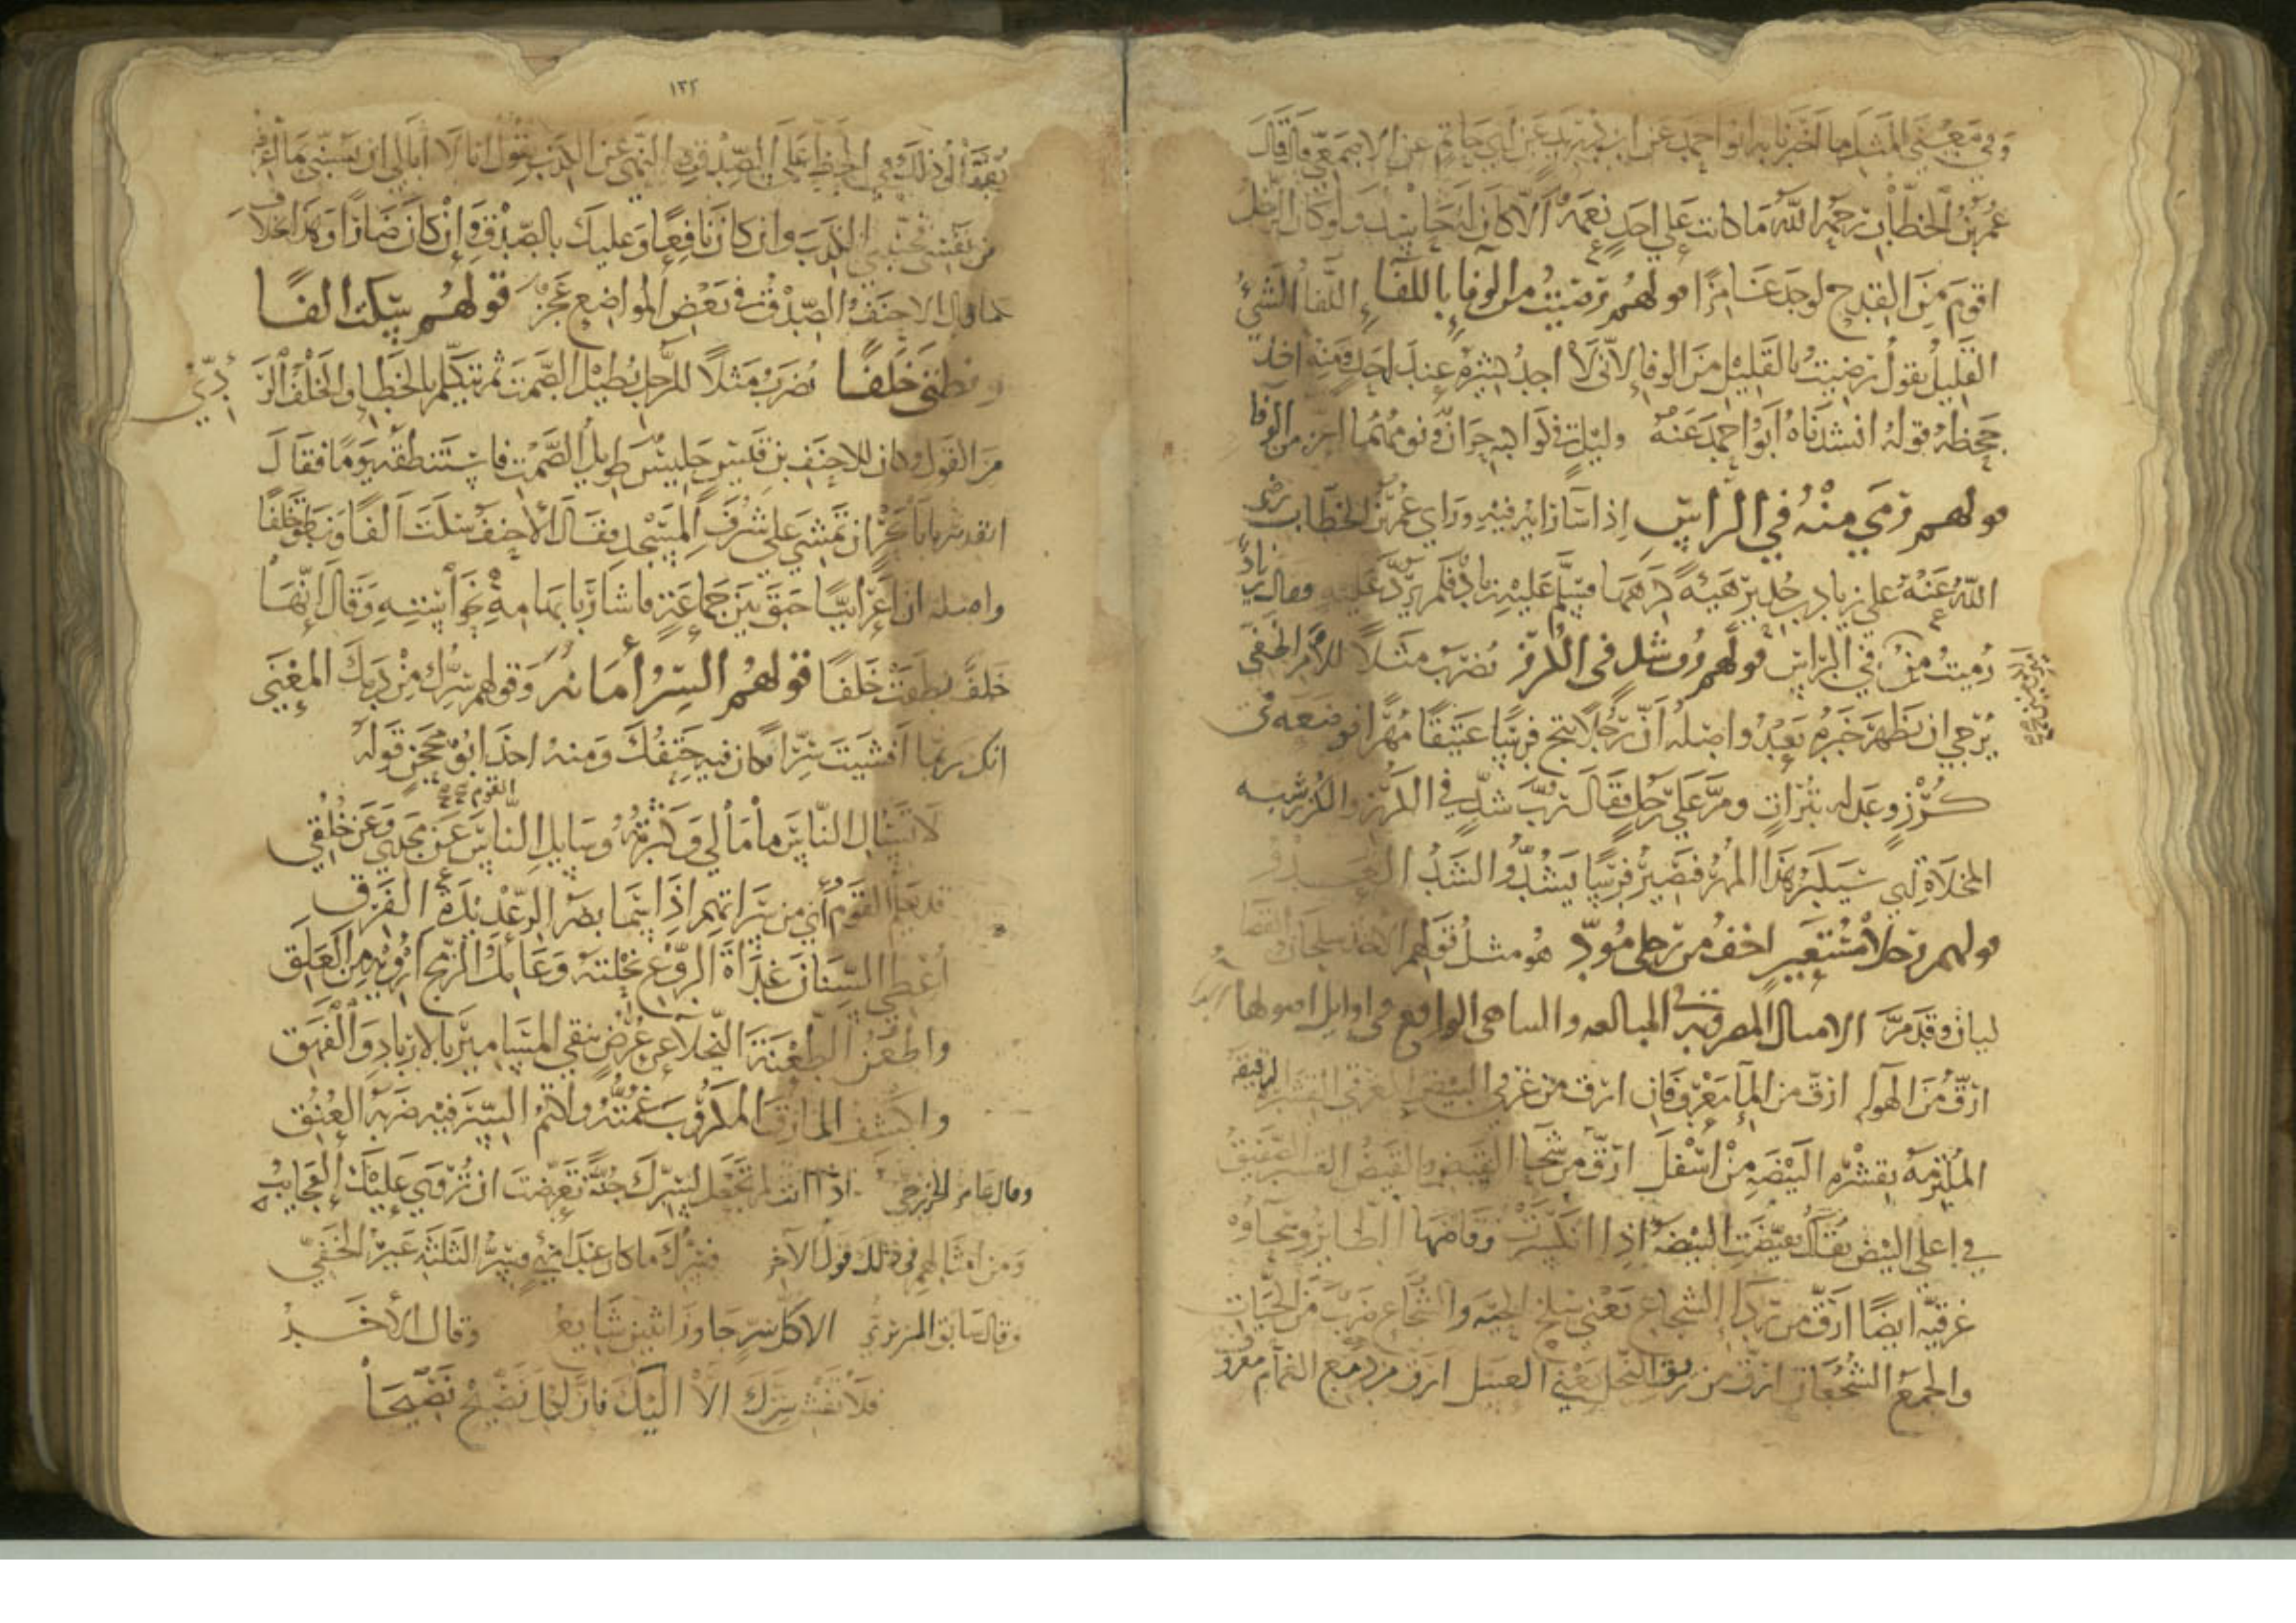 وفي معنى المثل ما اخبرنا به ابو احمد عن ابن دريد عن ابي حاتم عن الاصمعي قال قال
عمر بن الخطاب رحمه الله ما كانت على احد نعمة الا كان لها حاسد ولو كان الرجل
اقوم من القدح لوجد غامزا قولهم رضيت من الوفاء باللفاء اللفاء الشيء
القليل يقول رضيت بالقليل من الوفاء لاني لا اجد كثيره عند احد ومنه اخذ
جحظة قوله انشدناه ابو احمد عنه وليلة في
من الوفا
قولهم رمي منه في الراس اذا ساء رايه فيه وراى عمر بن الخطاب رضى
الله عنه على زياد بن حدير هيئة كرهها فسلم عليه زياد فلم يرد عليه فقال زياد
رميت من في الراس قولهم رب شد في الكرز يضرب مثلا للامر الخفي
يرجى ان يظهر خبره بعد واصله ان رجلا نتج فرسا عتيقا مهرا فوضعه في
كرز وعدله بتراب ومر على رجل فقال رب شد في الكرز والكرز شبه
المخلاة اي سيكبر هذا المهر فيصير فرسا يشد والشد العدو
قولهم رحلا مستعير اخف من رجلي مود هو مثل قولهم الاخذ سلجان والقضا
ليان وقد مر الامثال المضروبة في المبالغة والتناهي الواقع في اوايل اصولها
ارق من الهواء ارق من الماء معروفان ارق من غرقئ البيض الغرقئ القشرة الرقيقة
الملتزمة بقشره البيضة من اسفل ارق من سحا القيض والقيض القشر
في اعلى البيض يقال تقيضت البيضة اذا انكسرت وقاضها الطاير وسحاوه
غرقيه ايضا ارق من ردا الشجاع يعني سلخ الحية والشجاع ضرب من الحيات
والجمع الشجعان ارق من ريق النحل يعني العسل ارق من دمع الغمام معروف
١٣٢
ذلك في الحظ على الصدق والنهي عن الكذب يقول انا لا ابالي ان يسبني ما اعرفه
من نفسي فجنبني الكذب وان كان نافعا وعليك بالصدق وان كان ضارا وهذا خلاف
ما قال الاحنف الصدق في بعض المواضع عجز قولهم سكت الفا
ونطق خلفا يضرب مثلا للرجل يطيل الصمت ثم يتكلم بالخطا والخلف الردي
من القول وكان للاحنف بن قيس جليس طويل الصمت فاستنطقه يوما فقال
اتقدر يا با بحر ان تمشي على شرف المسجد فقال الاحنف سكت الفا ونطق خلفا
واصله ان اعرابيا حبق بين جماعة فاشار بابهامه نحو استه وقال انها
خلف نطقت خلفا قولهم السر امانة وقولهم سرك من دمك المعنى
انك ربما افشيت سرا فكان فيه حتفك ومنه اخذ ابو محجن قوله
لا تسال الناس ما مالي وكثرته وسايل الناس عن مجدي وعن خلقي
القوم
قد يعلم القوم اني من سراتهم اذا سما بصر الرعديدة الفرق
اعطي السنان غداة الروع نحلته وعامل الرمح ارويه من العلق
واطعن الطعنة النجلا عن عرض تنفي المسابير بالازباد والفهق
واكشف المازق المكروب غمته واكتم السر فيه ضربة العنق
وقال عامر الخزرجي اذا انت لم تجعل لسرك جنة تعرضت ان تروى عليك العجايب
ومن امثالهم في ذلك قول الاخر فسرك ما كان عند امرئ وسر الثلثة غير الخفي
وقال سابق البربري الا كل سر جاوز اثنين شايع وقال الاخر
فلا تفش سرك الا اليك فان لكل نصيح نصيحا